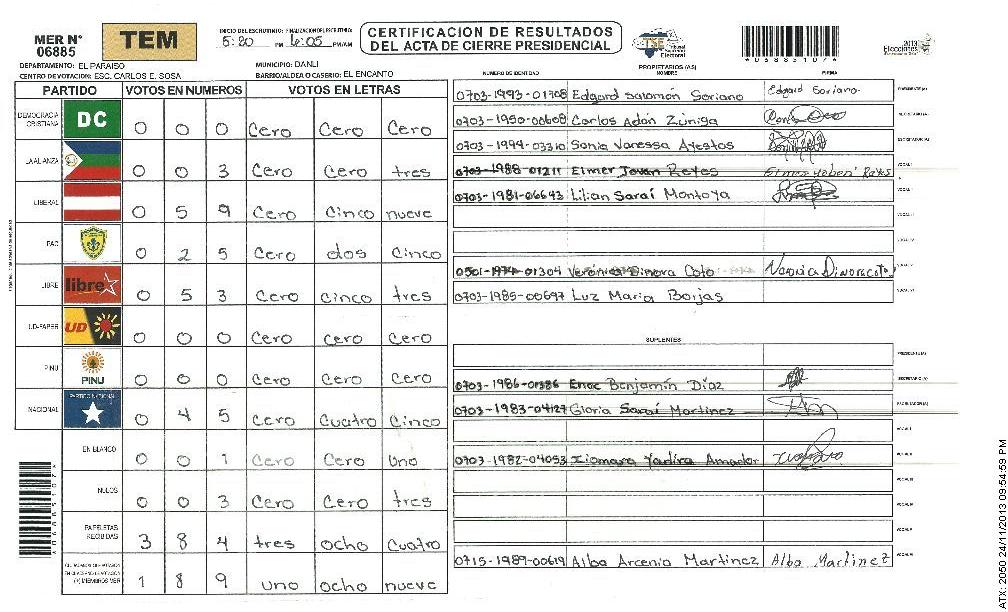 MER N° 06885
TEM
INICIO DEL ESCRUTINIO: FINALIZACION DEL ESCRUTINIO:
5:20 PM 6:05 PM/AM
CERTIFICACION DE RESULTADOS
DEL ACTA DE CIERRE PRESIDENCIAL
TSE Tribunal Supremo Electoral
06885107
2013
Elecciones
DEPARTAMENTO: EL PARAISO
MUNICIPIO: DANLI
CENTRO DE VOTACION: ESC. CARLOS E. SOSA
BARRIO/ALDEA O CASERIO: EL ENCANTO
PARTIDO VOTOS EN NUMEROS VOTOS EN LETRAS
DEMOCRACIA CRISTIANA DC 0 0 0 Cero Cero Cero
LA ALIANZA 0 0 3 Cero Cero tres
LIBERAL 0 5 9 Cero Cinco nueve
PAC 0 2 5 Cero dos Cinco
LIBRE libre 0 5 3 Cero Cinco tres
UD-FAPER UD 0 0 0 Cero Cero Cero
PINU PINU 0 0 0 Cero Cero Cero
NACIONAL PARTIDO NACIONAL 0 4 5 Cero Cuatro Cinco
EN BLANCO 0 0 1 Cero Cero Uno
NULOS 0 0 3 Cero Cero tres
PAPELETAS RECIBIDAS 3 8 4 tres ocho Cuatro
(+) MIEMBROS MER 1 8 9 uno ocho nueve
PROPIETARIOS (AS)
NUMERO DE IDENTIDAD NOMBRE FIRMA
0703-1993-01708 Edgard Salomón Soriano Edgard Soriano PRESIDENTE (A)
0703-1950-00608 Carlos Adán Zúniga SECRETARIO (A)
0703-1994-03310 Sonia Vanessa Ayestos ESCRUTADOR (A)
0703-1988-01211 Elmer Jovan Reyes VOCAL I
0703-1981-06643 Lilian Saraí Montoya
0501-1974-01304 Verónica Dinora Coto
0703-1985-00697 Luz Maria Borjas
SUPLENTES
PRESIDENTE (A)
0703-1986-01386 Enoc Benjamín Díaz SECRETARIO (A)
0703-1983-04127 Gloria Saraí Martinez ESCRUTADOR (A)
0703-1982-04053 Xiomara Yadira Amador
0715-1989-00619 Alba Arcenia Martinez Alba Martinez
ATX: 2050 24/11/2013 09:54:59 PM